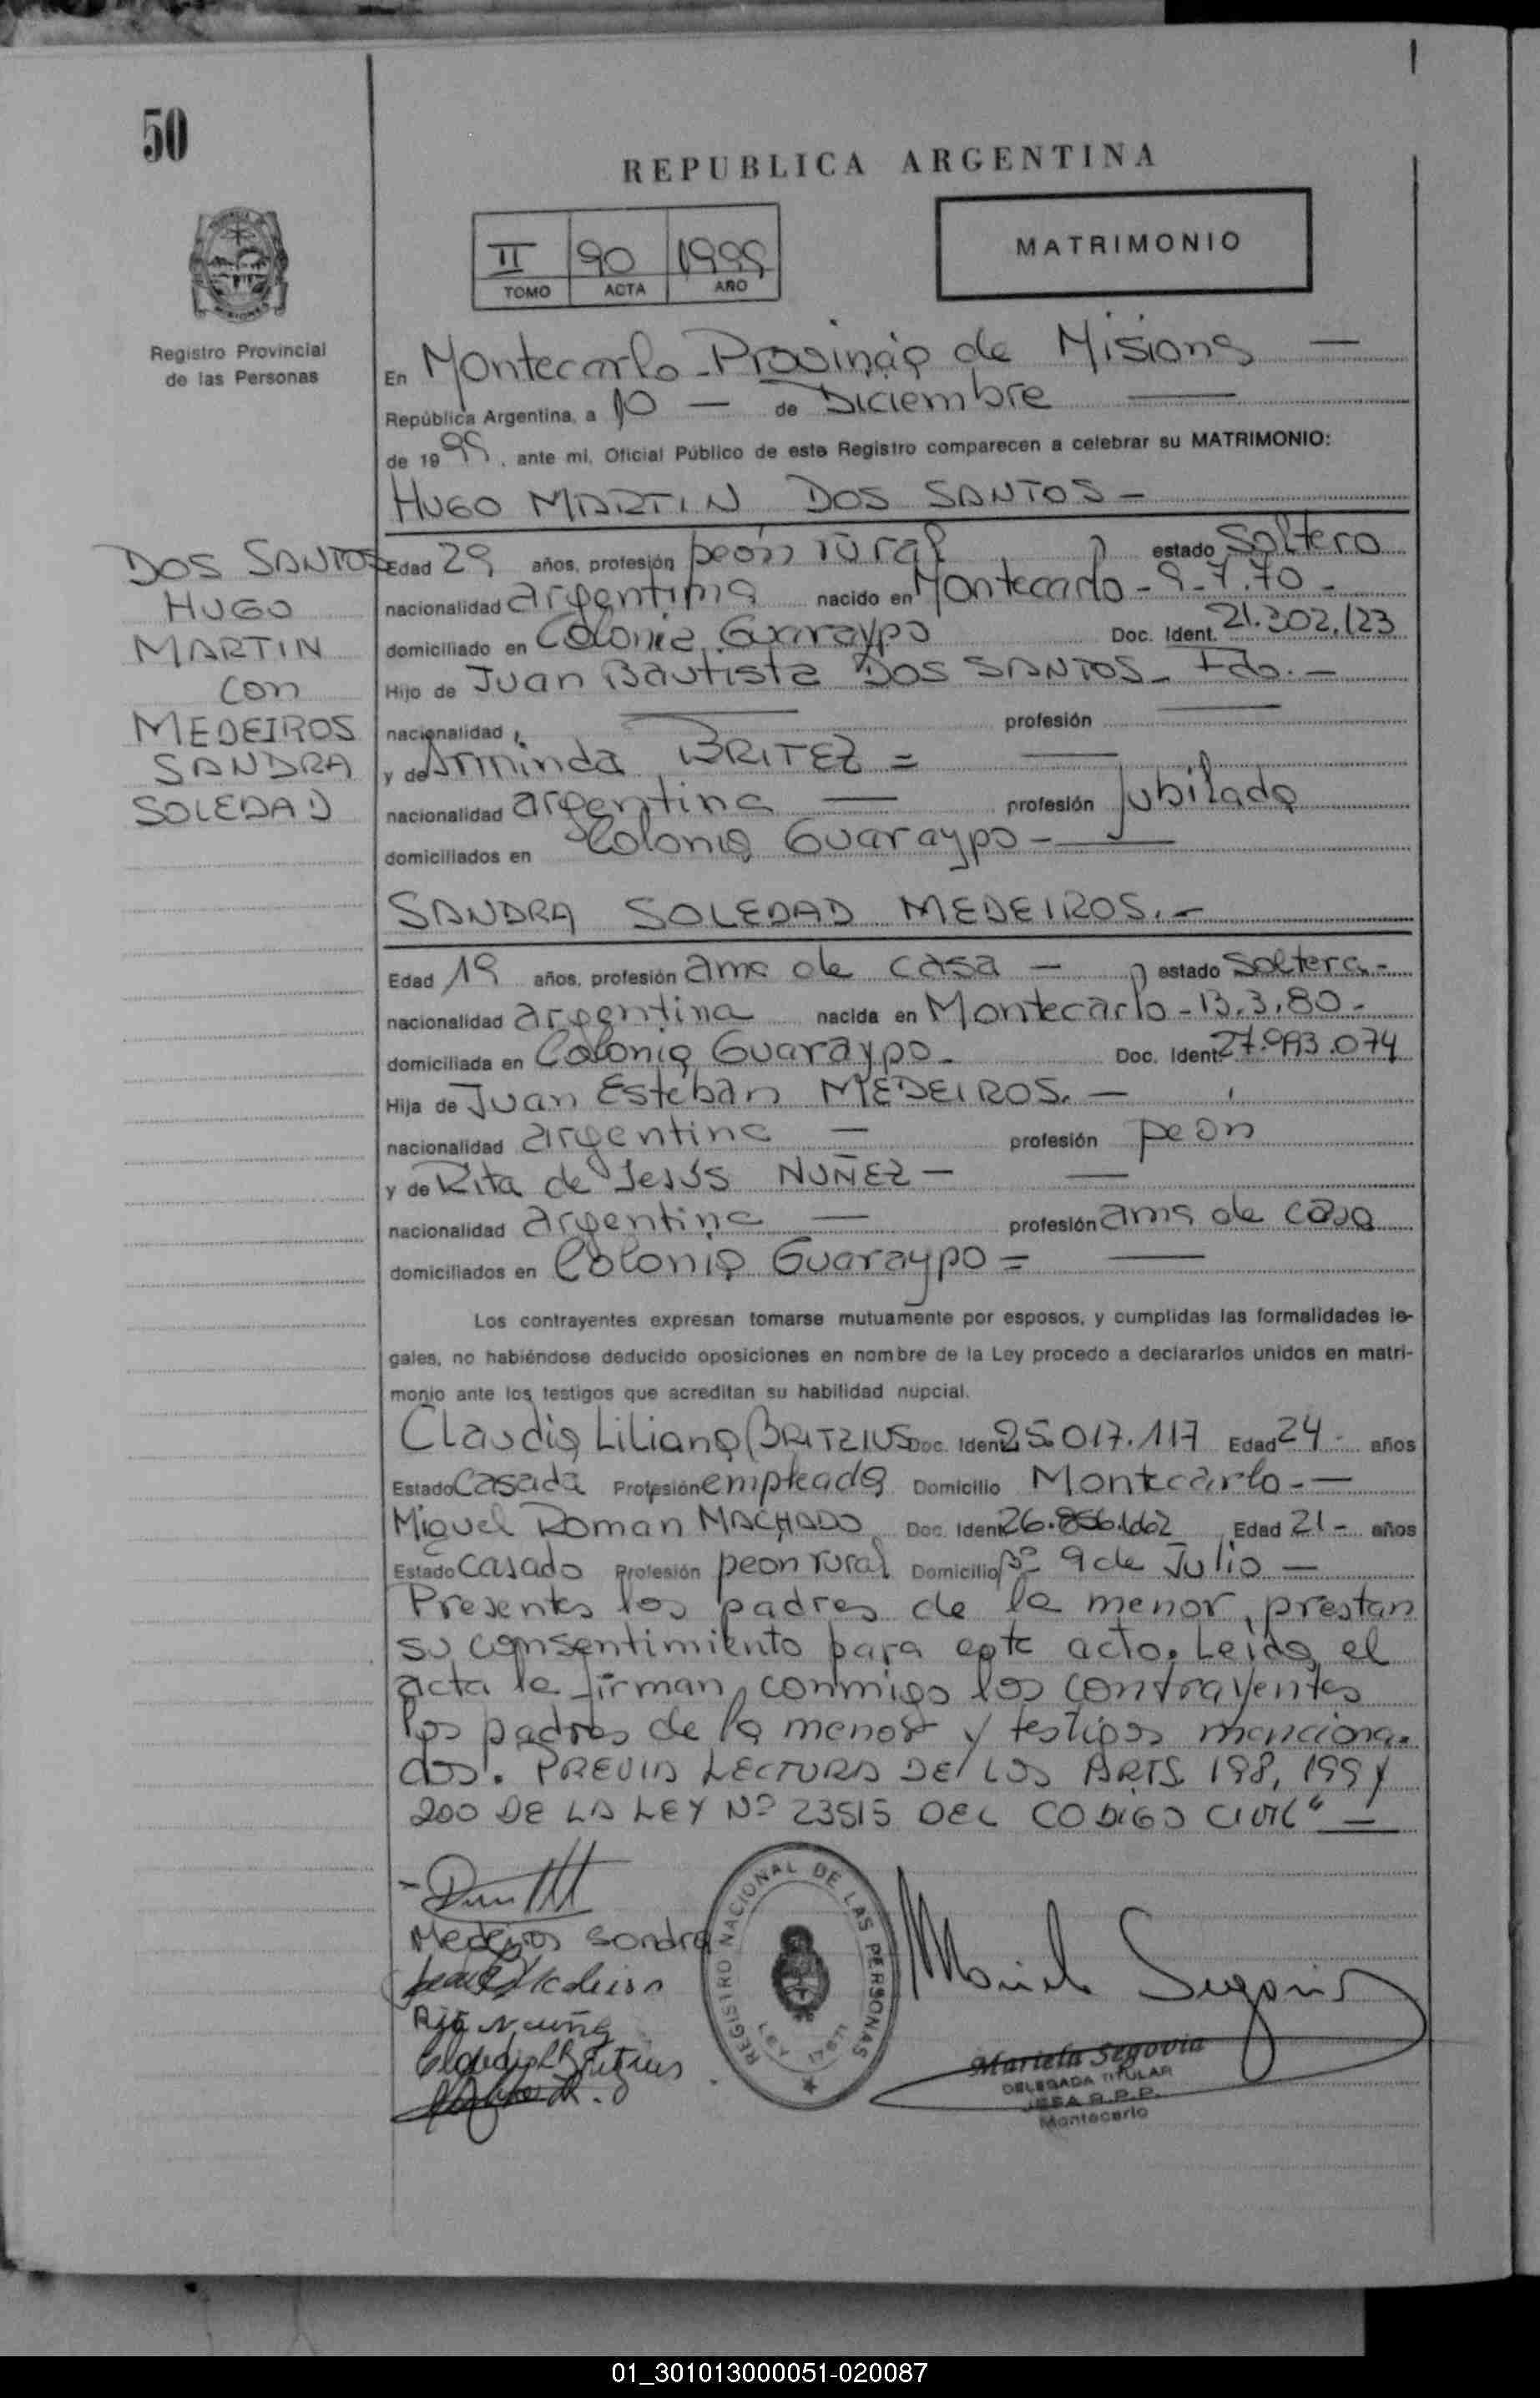 50
REPUBLICA ARGENTINA
II 90 1999
TOMO ACTA AÑO
MATRIMONIO
Registro Provincial
de las Personas
En Montecarlo - Provincia de Misiones —
República Argentina, a 10 — de Diciembre —
de 1999, ante mí, Oficial Público de este Registro comparecen a celebrar su MATRIMONIO:
HUGO MARTIN DOS SANTOS -
DOS SANTOS
HUGO
MARTIN
con
MEDEIROS
SANDRA
SOLEDAD
Edad 29 años, profesión peón rural estado Soltero
nacionalidad argentina nacido en Montecarlo - 9.7.70 -
domiciliado en Colonia Guaraypo Doc. Ident. 21.302.123
Hijo de Juan Bautista DOS SANTOS - Fdo. -
nacionalidad — profesión —
y de Arminda BRITEZ = —
nacionalidad argentina — profesión Jubilada
domiciliados en Colonia Guaraypo - —
SANDRA SOLEDAD MEDEIROS. -
Edad 19 años, profesión ama de casa — estado Soltera -
nacionalidad argentina nacida en Montecarlo - 13.3.80 -
domiciliada en Colonia Guaraypo - Doc. Ident. 27.993.074
Hija de Juan Esteban MEDEIROS. —
nacionalidad argentina — profesión peon
y de Rita de Jesús NUÑEZ — —
nacionalidad argentina — profesión ama de casa
domiciliados en Colonia Guaraypo = —
Los contrayentes expresan tomarse mutuamente por esposos, y cumplidas las formalidades le-
gales, no habiéndose deducido oposiciones en nombre de la Ley procedo a declararlos unidos en matri-
monio ante los testigos que acreditan su habilidad nupcial.
Claudia Liliana BRITZIUS Doc. Ident. 25.017.117 Edad 24 - años
Estado Casada Profesión empleada Domicilio Montecarlo - —
Miguel Roman MACHADO Doc. Ident. 26.856.662 Edad 21 - años
Estado Casado Profesión peon rural Domicilio Bº 9 de Julio —
Presentes los padres de la menor, prestan
su consentimiento para este acto. Leida el
acta la firman conmigo los contrayentes
los padres de la menor y testigos menciona-
dos. PREVIA LECTURA DE LOS ARTS. 198, 199 y
200 DE LA LEY Nº 23515 DEL CODIGO CIVIL" —
Medeiros Sandra
REGISTRO NACIONAL DE LAS PERSONAS
LEY 17671
Mariela Segovia
Mariela Segovia
DELEGADA TITULAR
JEFA R.P.P.
Montecarlo
01_301013000051-020087